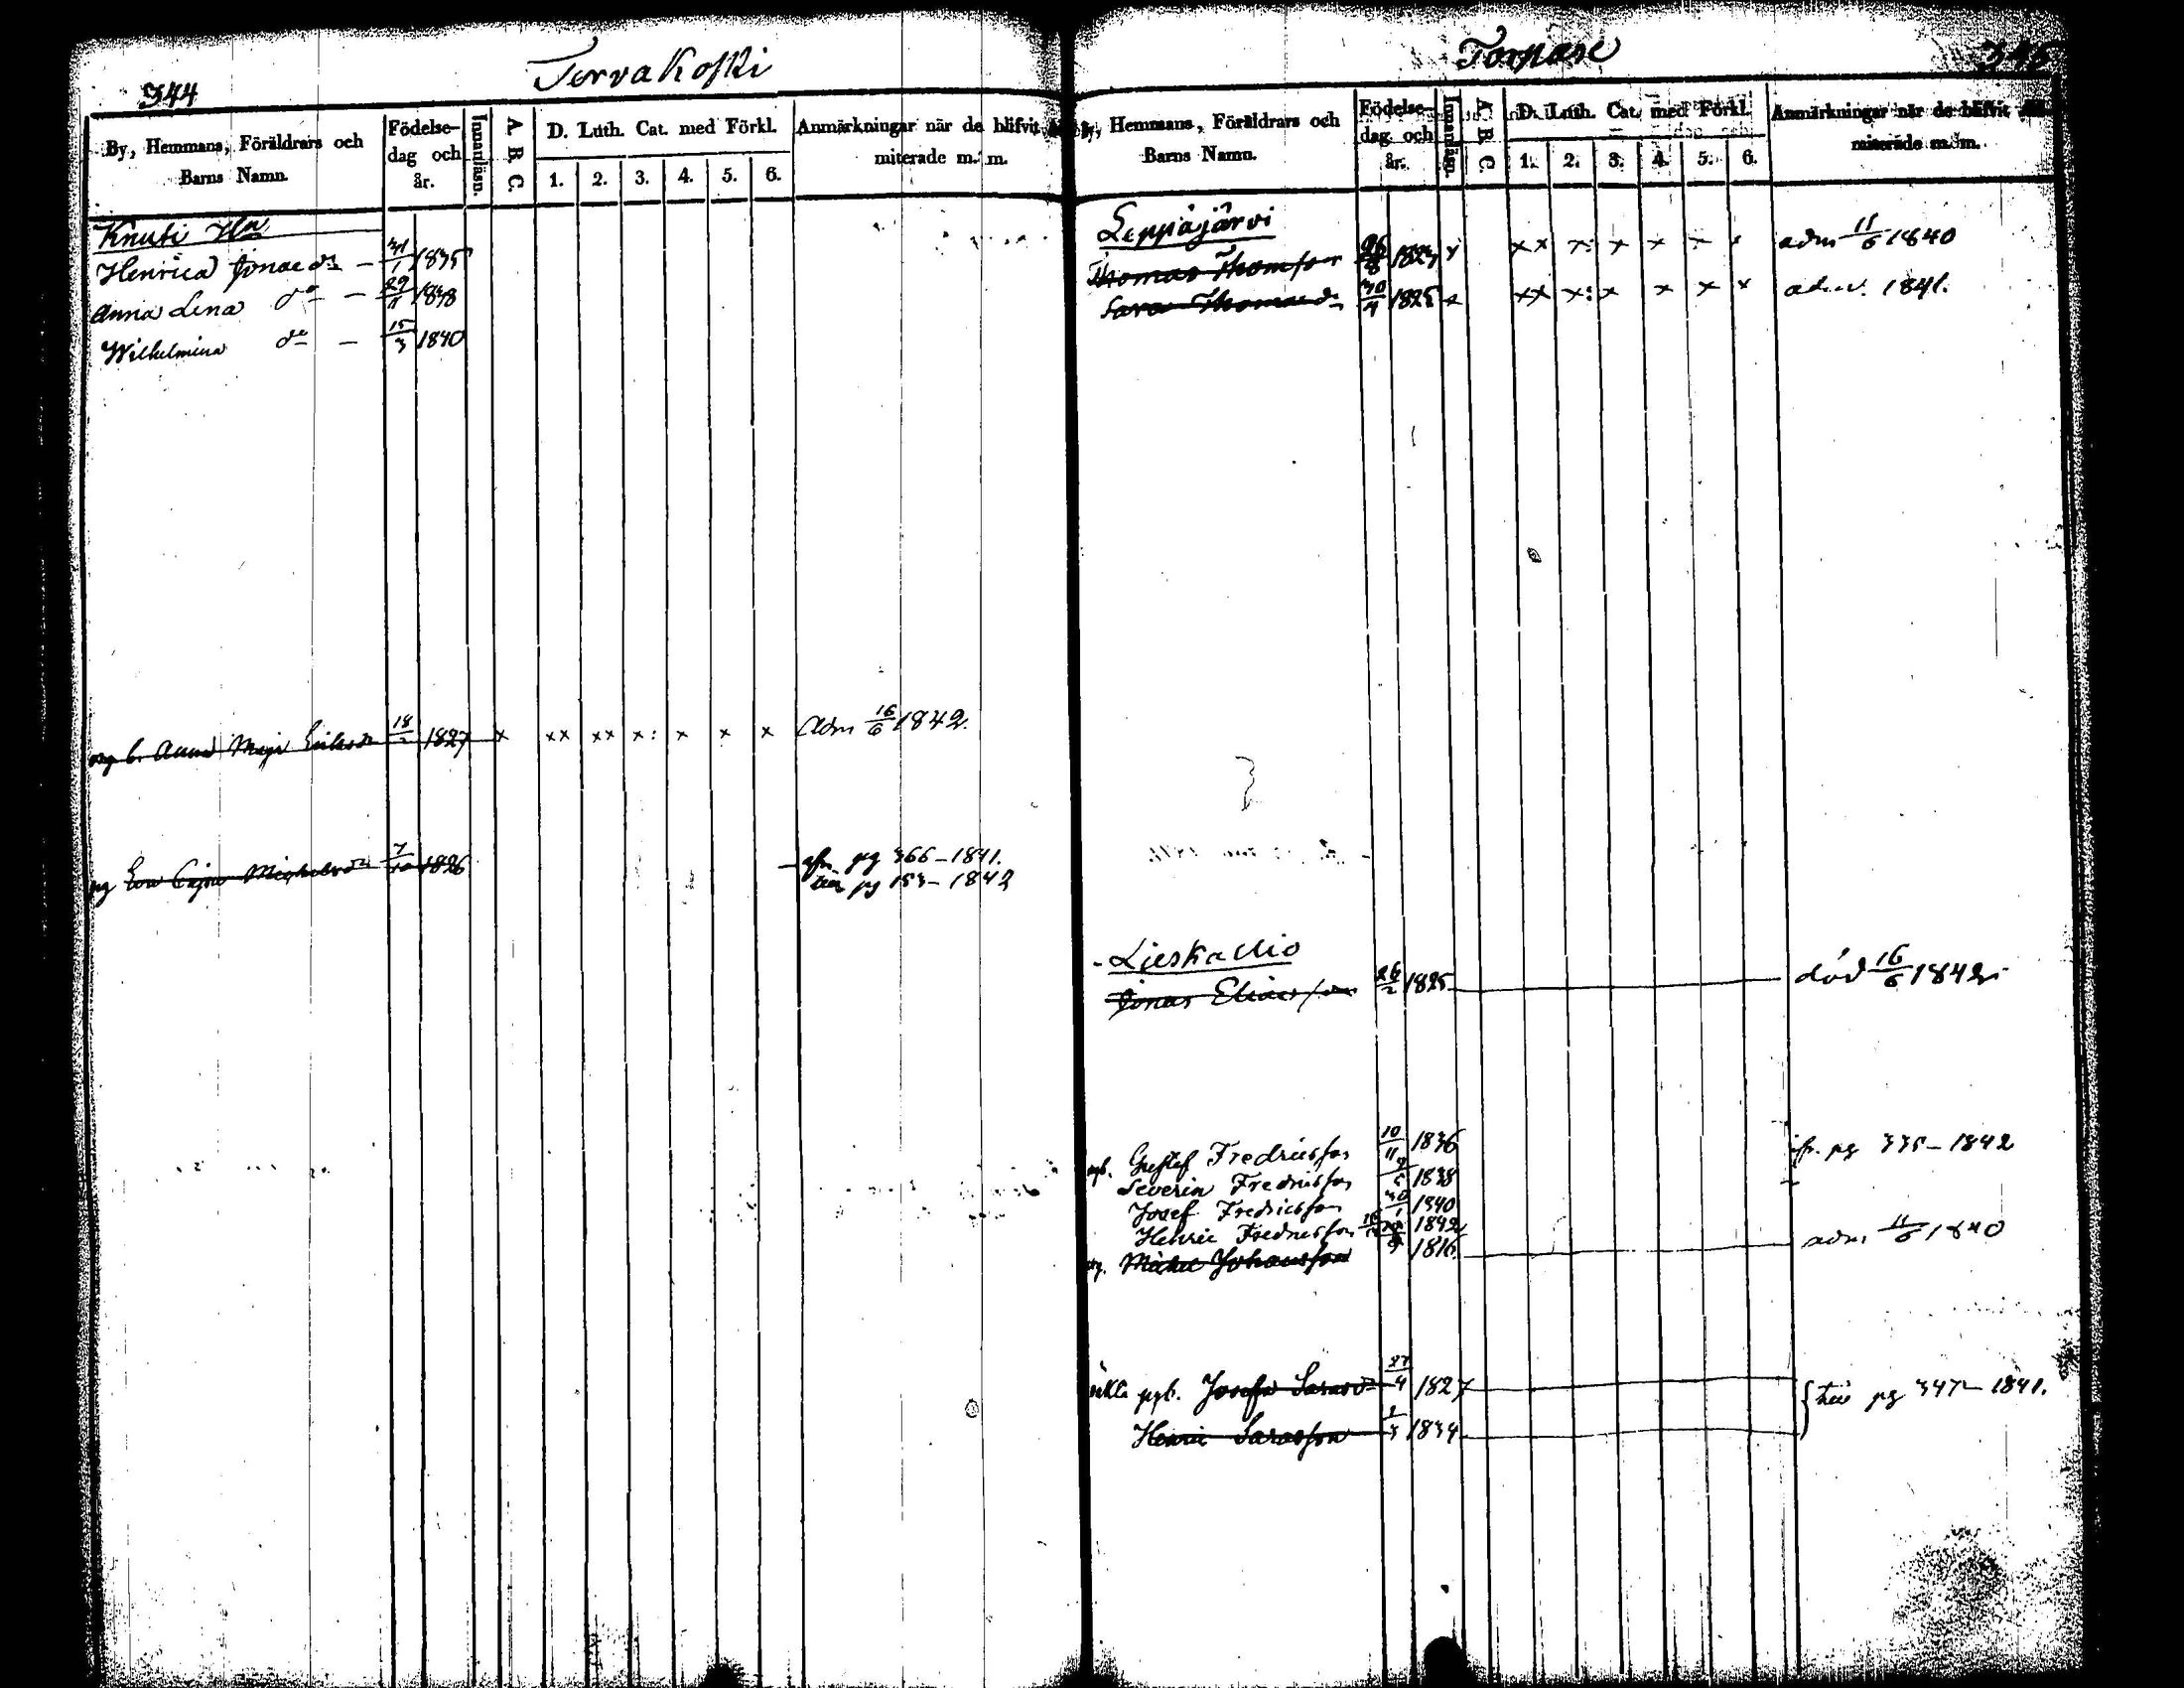 344
Tervakoski
By, Hemmans, Föräldrars och Barns Namn.
Födelse-dag och år.
Innanläsn.
A B C.
D. Luth. Cat. med Förkl.
1. 2. 3. 4. 5. 6.
Anmärkningar när de blifvit
miterade m. m.
Knuti Hn
Henrica Jonaedr — 31/1 1835
Anna Lena do — 29/11 1838
Wilhelmina do — 15/3 1840
Anna Maja Eriksdr 18/2 1827 x xx xx x: x x x Adm 16/6 1842.
pg Eva Cajsa Michelsdr 7/10 1826 — pg 366–1841.
pg 153–1842
Tornase
By, Hemmans, Föräldrars och Barns Namn.
Födelse-dag och år.
Innanläsn.
A B C.
D. Luth. Cat. med Förkl.
1. 2. 3. 4. 5. 6.
Anmärkningar när de blifvit
miterade m. m.
Leppäjärvi
Thomas Thomsson 1823 x xx x: x x x x adm 11/6 1840
Sara Thomaedr 30/11 1825 x xx x: x x x x adm. 1841.
Lieskallio
Jonas Eliasson 26/2 1825 död 16/6 1842
Gustaf Fredricsson 10/11 1836 fr. pg 335–1842
Severin Fredricsson 1838
Josef Fredricsson 30/1 1840
Henric Fredricsson 1842
Michel Johansson 1816 adm 11/6 1840
pgb. Josefa Sarasdr 27/4 1827 pg 347–1841.
Henric Sarasson 1/3 1834